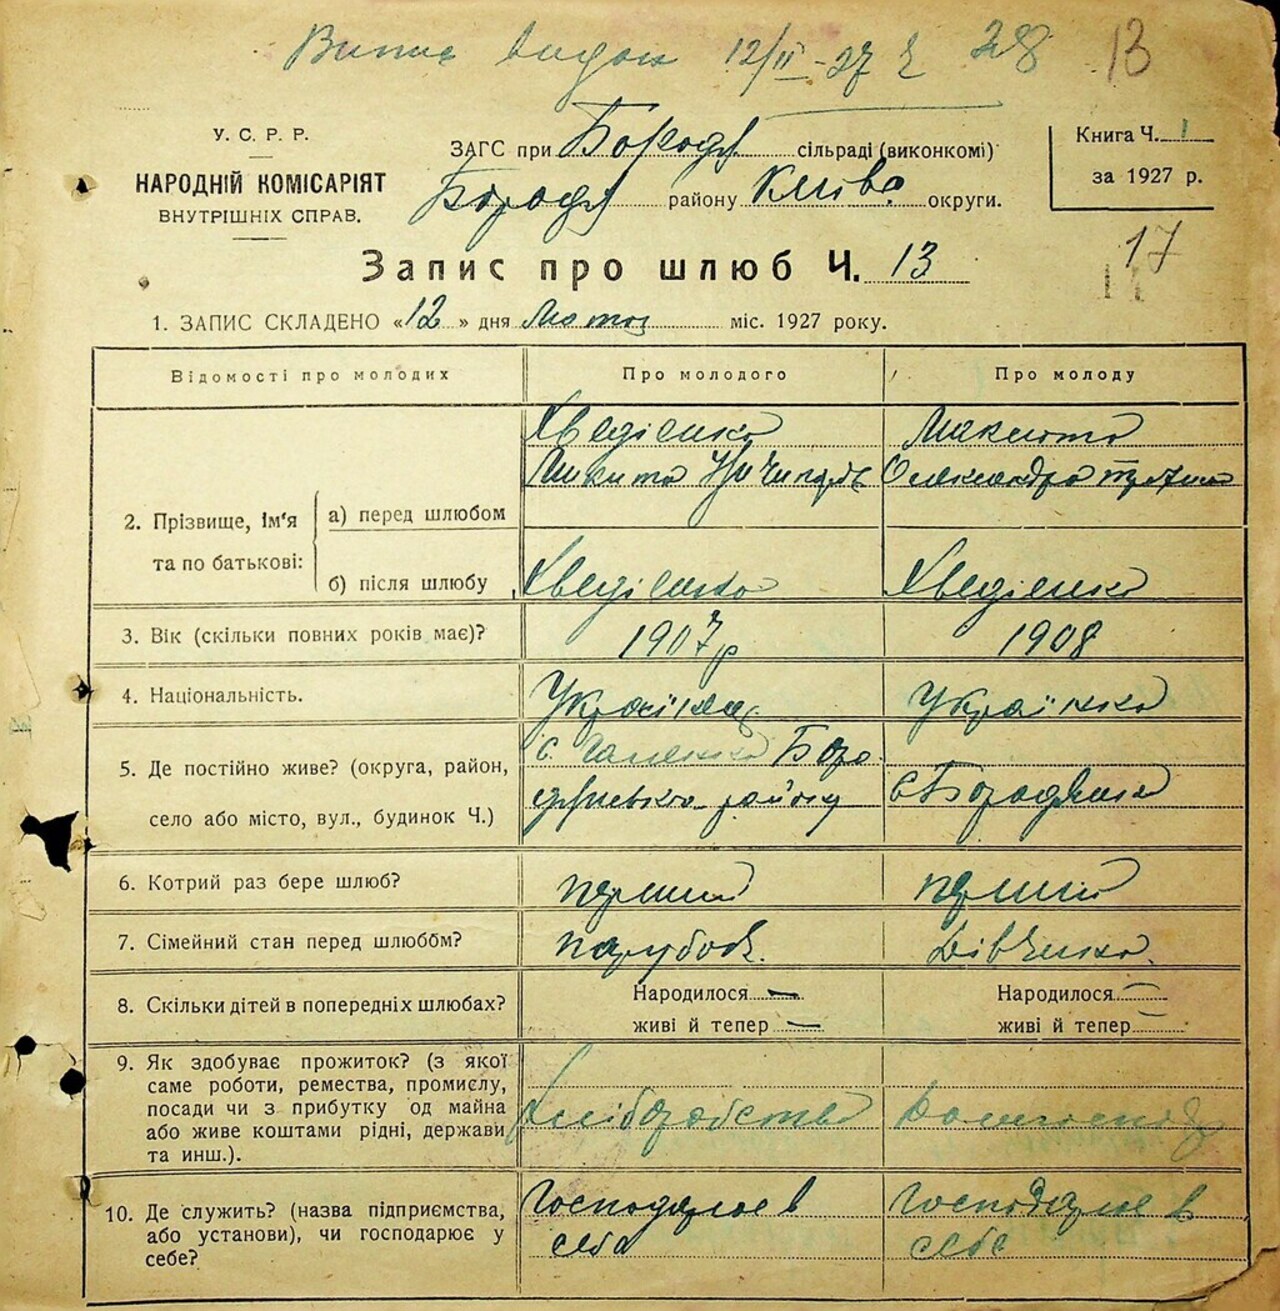 Випис видан 12/II-27 28 13
У. С. Р. Р.
НАРОДНІЙ КОМІСАРІЯТ
ВНУТРІШНІХ СПРАВ.
ЗАГС при Бородя сільраді (виконкомі)
Бородя району Київс. округи.
Книга Ч. 1
за 1927 р.
Запис про шлюб Ч. 13
17
1. ЗАПИС СКЛАДЕНО «12» дня Лютого міс. 1927 року.
Відомості про молодих
Про молодого
Про молоду
2. Прізвище, ім'я та по батькові:
а) перед шлюбом
Хведієнко
Микита Ничипор.
Олександра
б) після шлюбу
Хведієнко
Хведієнко
3. Вік (скільки повних років має)?
1907 р
1908
4. Національність.
Українец
Українка
5. Де постійно живе? (округа, район,
село або місто, вул., будинок Ч.)
с. Боро
дянського району
с Бородянка
6. Котрий раз бере шлюб?
перший
перший
7. Сімейний стан перед шлюбом?
парубок.
дівчина.
8. Скільки дітей в попередніх шлюбах?
Народилося —
живі й тепер —
Народилося —
живі й тепер —
9. Як здобуває прожиток? (з якої
саме роботи, ремества, промислу,
посади чи з прибутку од майна
або живе коштами рідні, держави
та инш.).
хліборобство
10. Де служить? (назва підприємства,
або установи), чи господарює у
себе?
Господарює в
себе
Господарює в
себе